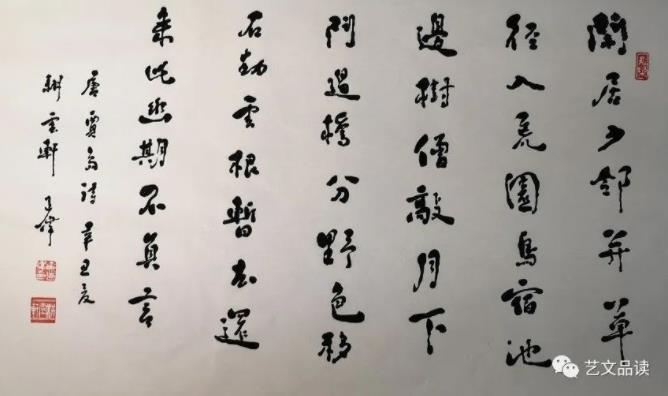 閑居少鄰并草
徑入荒園鳥宿池
邊樹僧敲月下
門過橋分野色移
石動雲根暫去還
來此幽期不負言
唐賈島詩 辛丑夏
雲軒
艺文品读